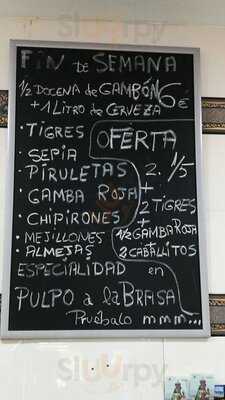 FiN DE SEMANA
1/2 DOCENA de GAMBÓN 6€
+ 1 LiTRO de CERVEZA
• TIGRES
SEPIA
• PiRULETAS
• GAMBA ROJA
• CHiPiRONES
• MEJILLONES
ALMEJAS
OFERTA
2. 1/5
+
2 TiGRES
+
1/2 GAMBA ROJA
+
2 CABALLITOS
ESPECIALIDAD en
PULPO a la BRASA
Pruébalo m m m...
Sluurpy